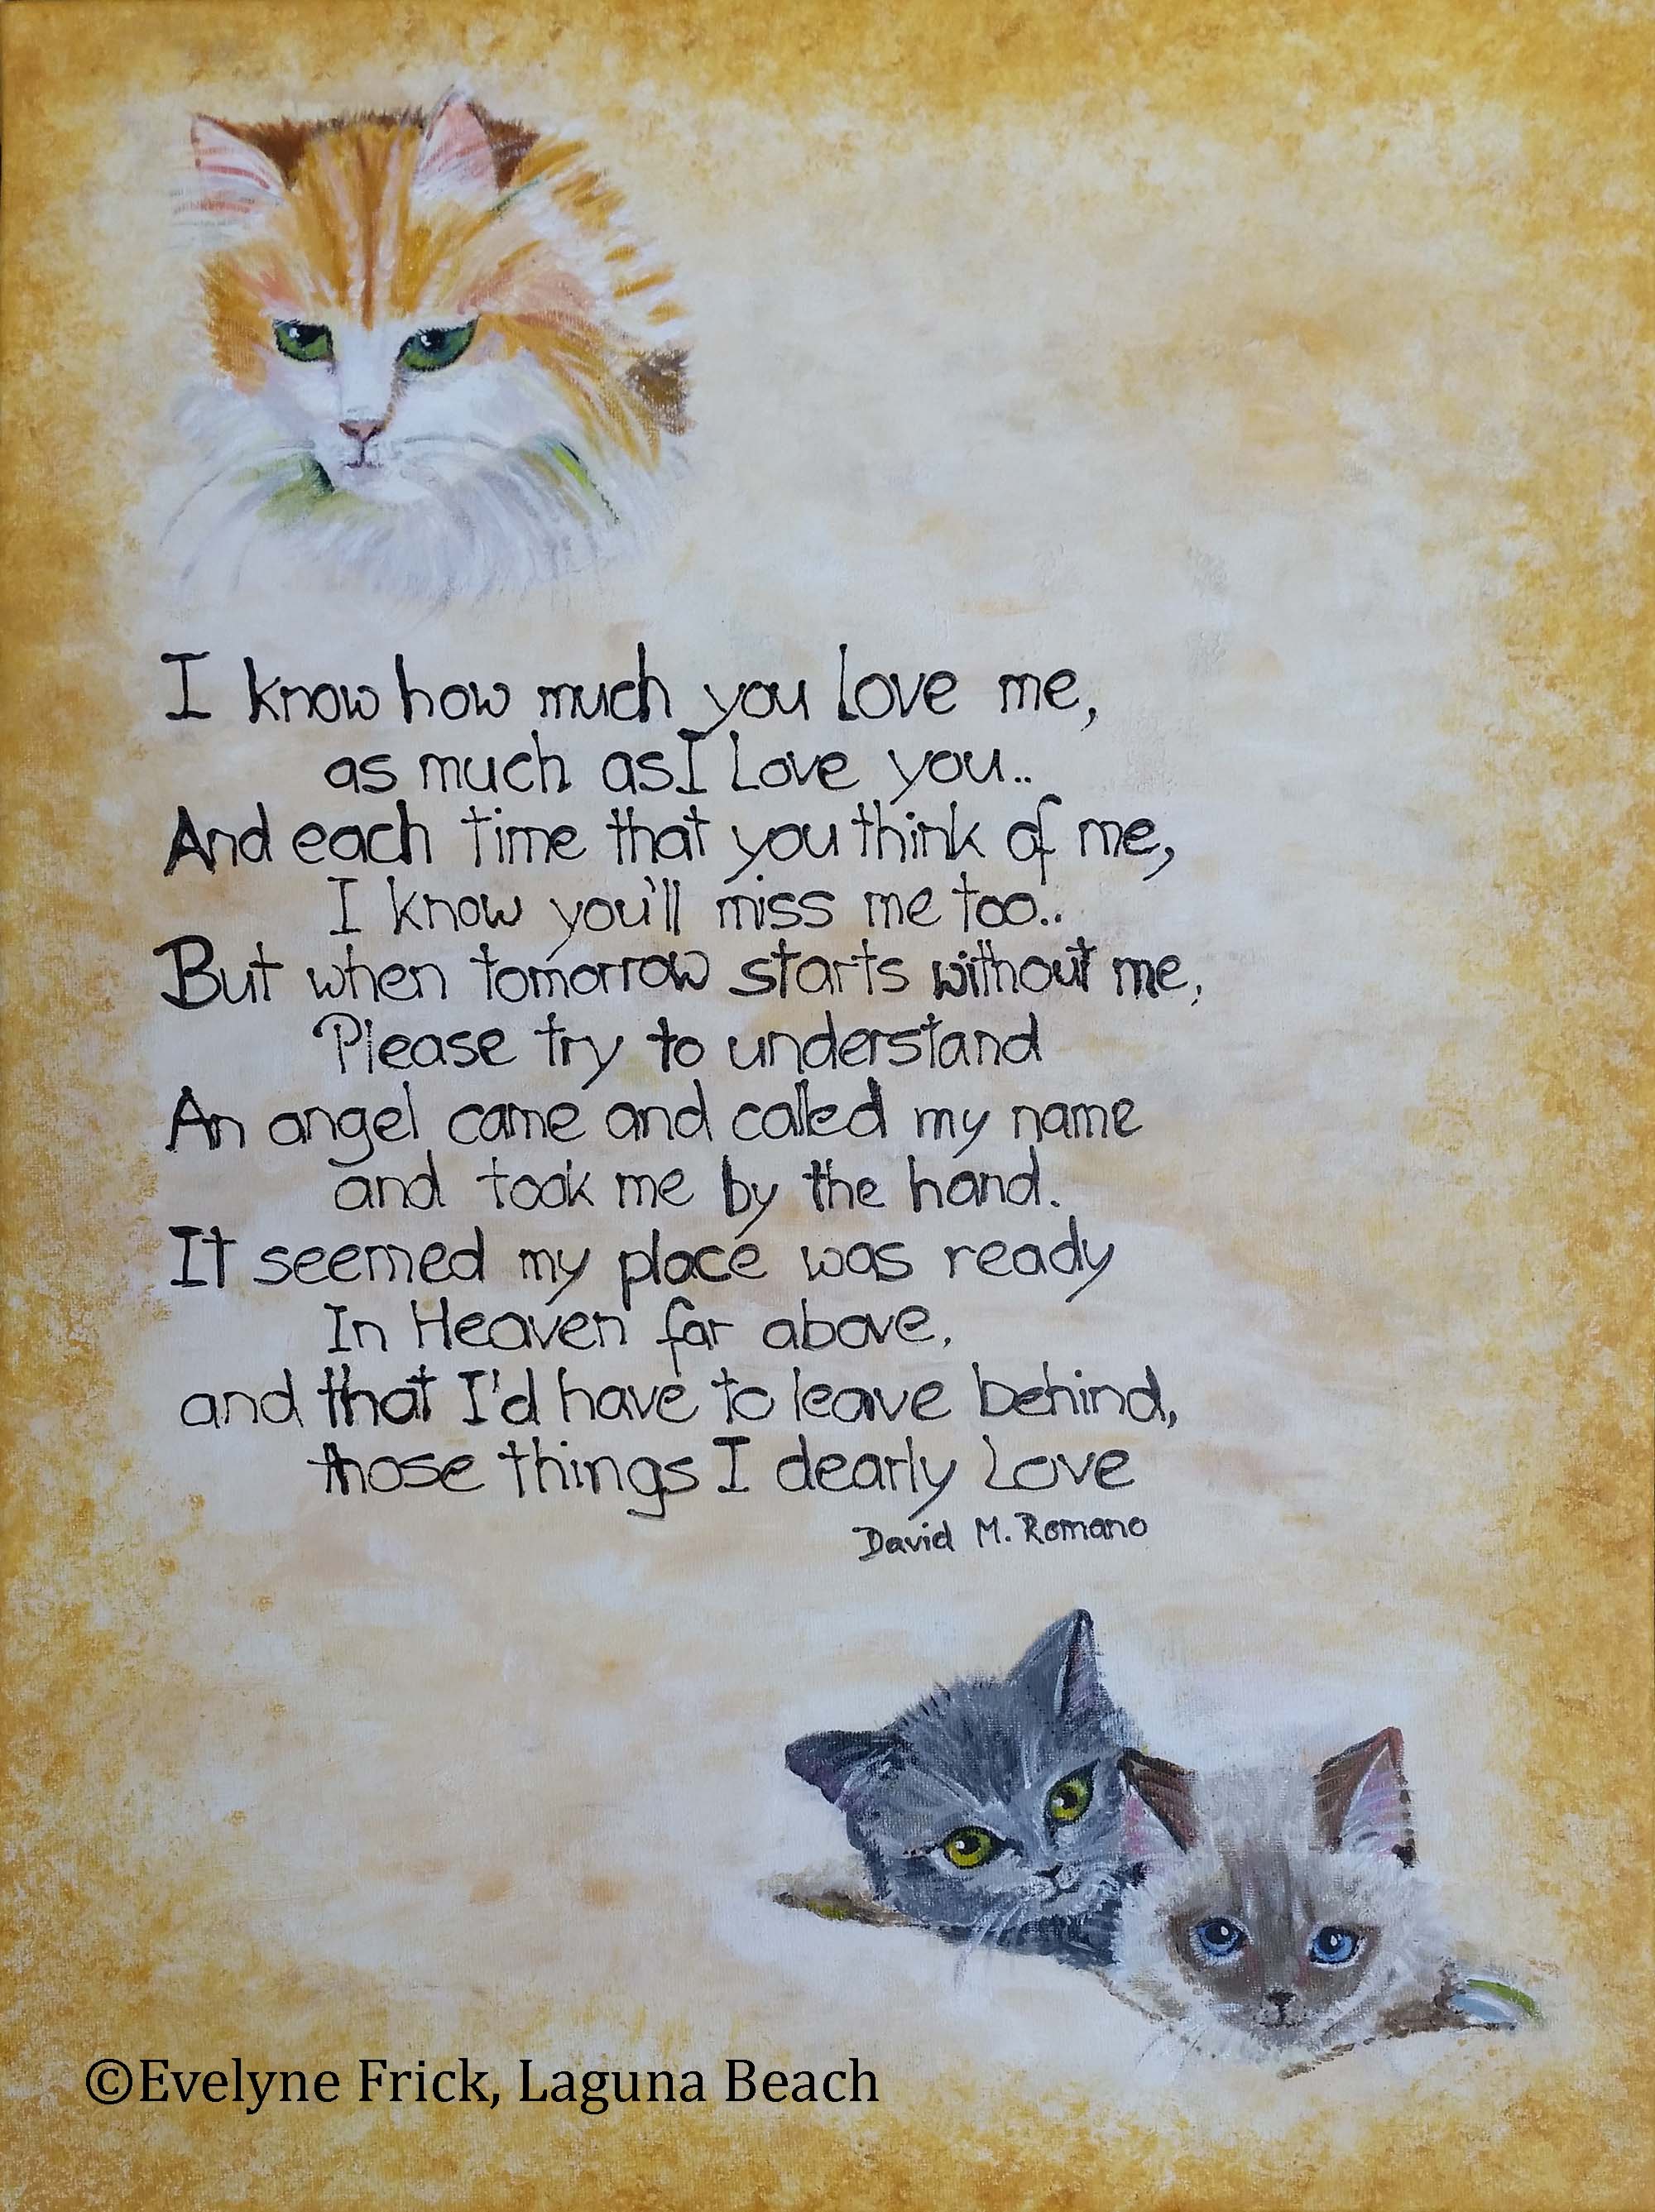 I know how much you love me,
as much as I Love you..
And each time that you think of me,
I know you'll miss me too..
But when tomorrow starts without me,
Please try to understand
An angel came and called my name
and took me by the hand.
It seemed my place was ready
In Heaven far above,
and that I'd have to leave behind,
those things I dearly Love
David M. Romano
©Evelyne Frick, Laguna Beach